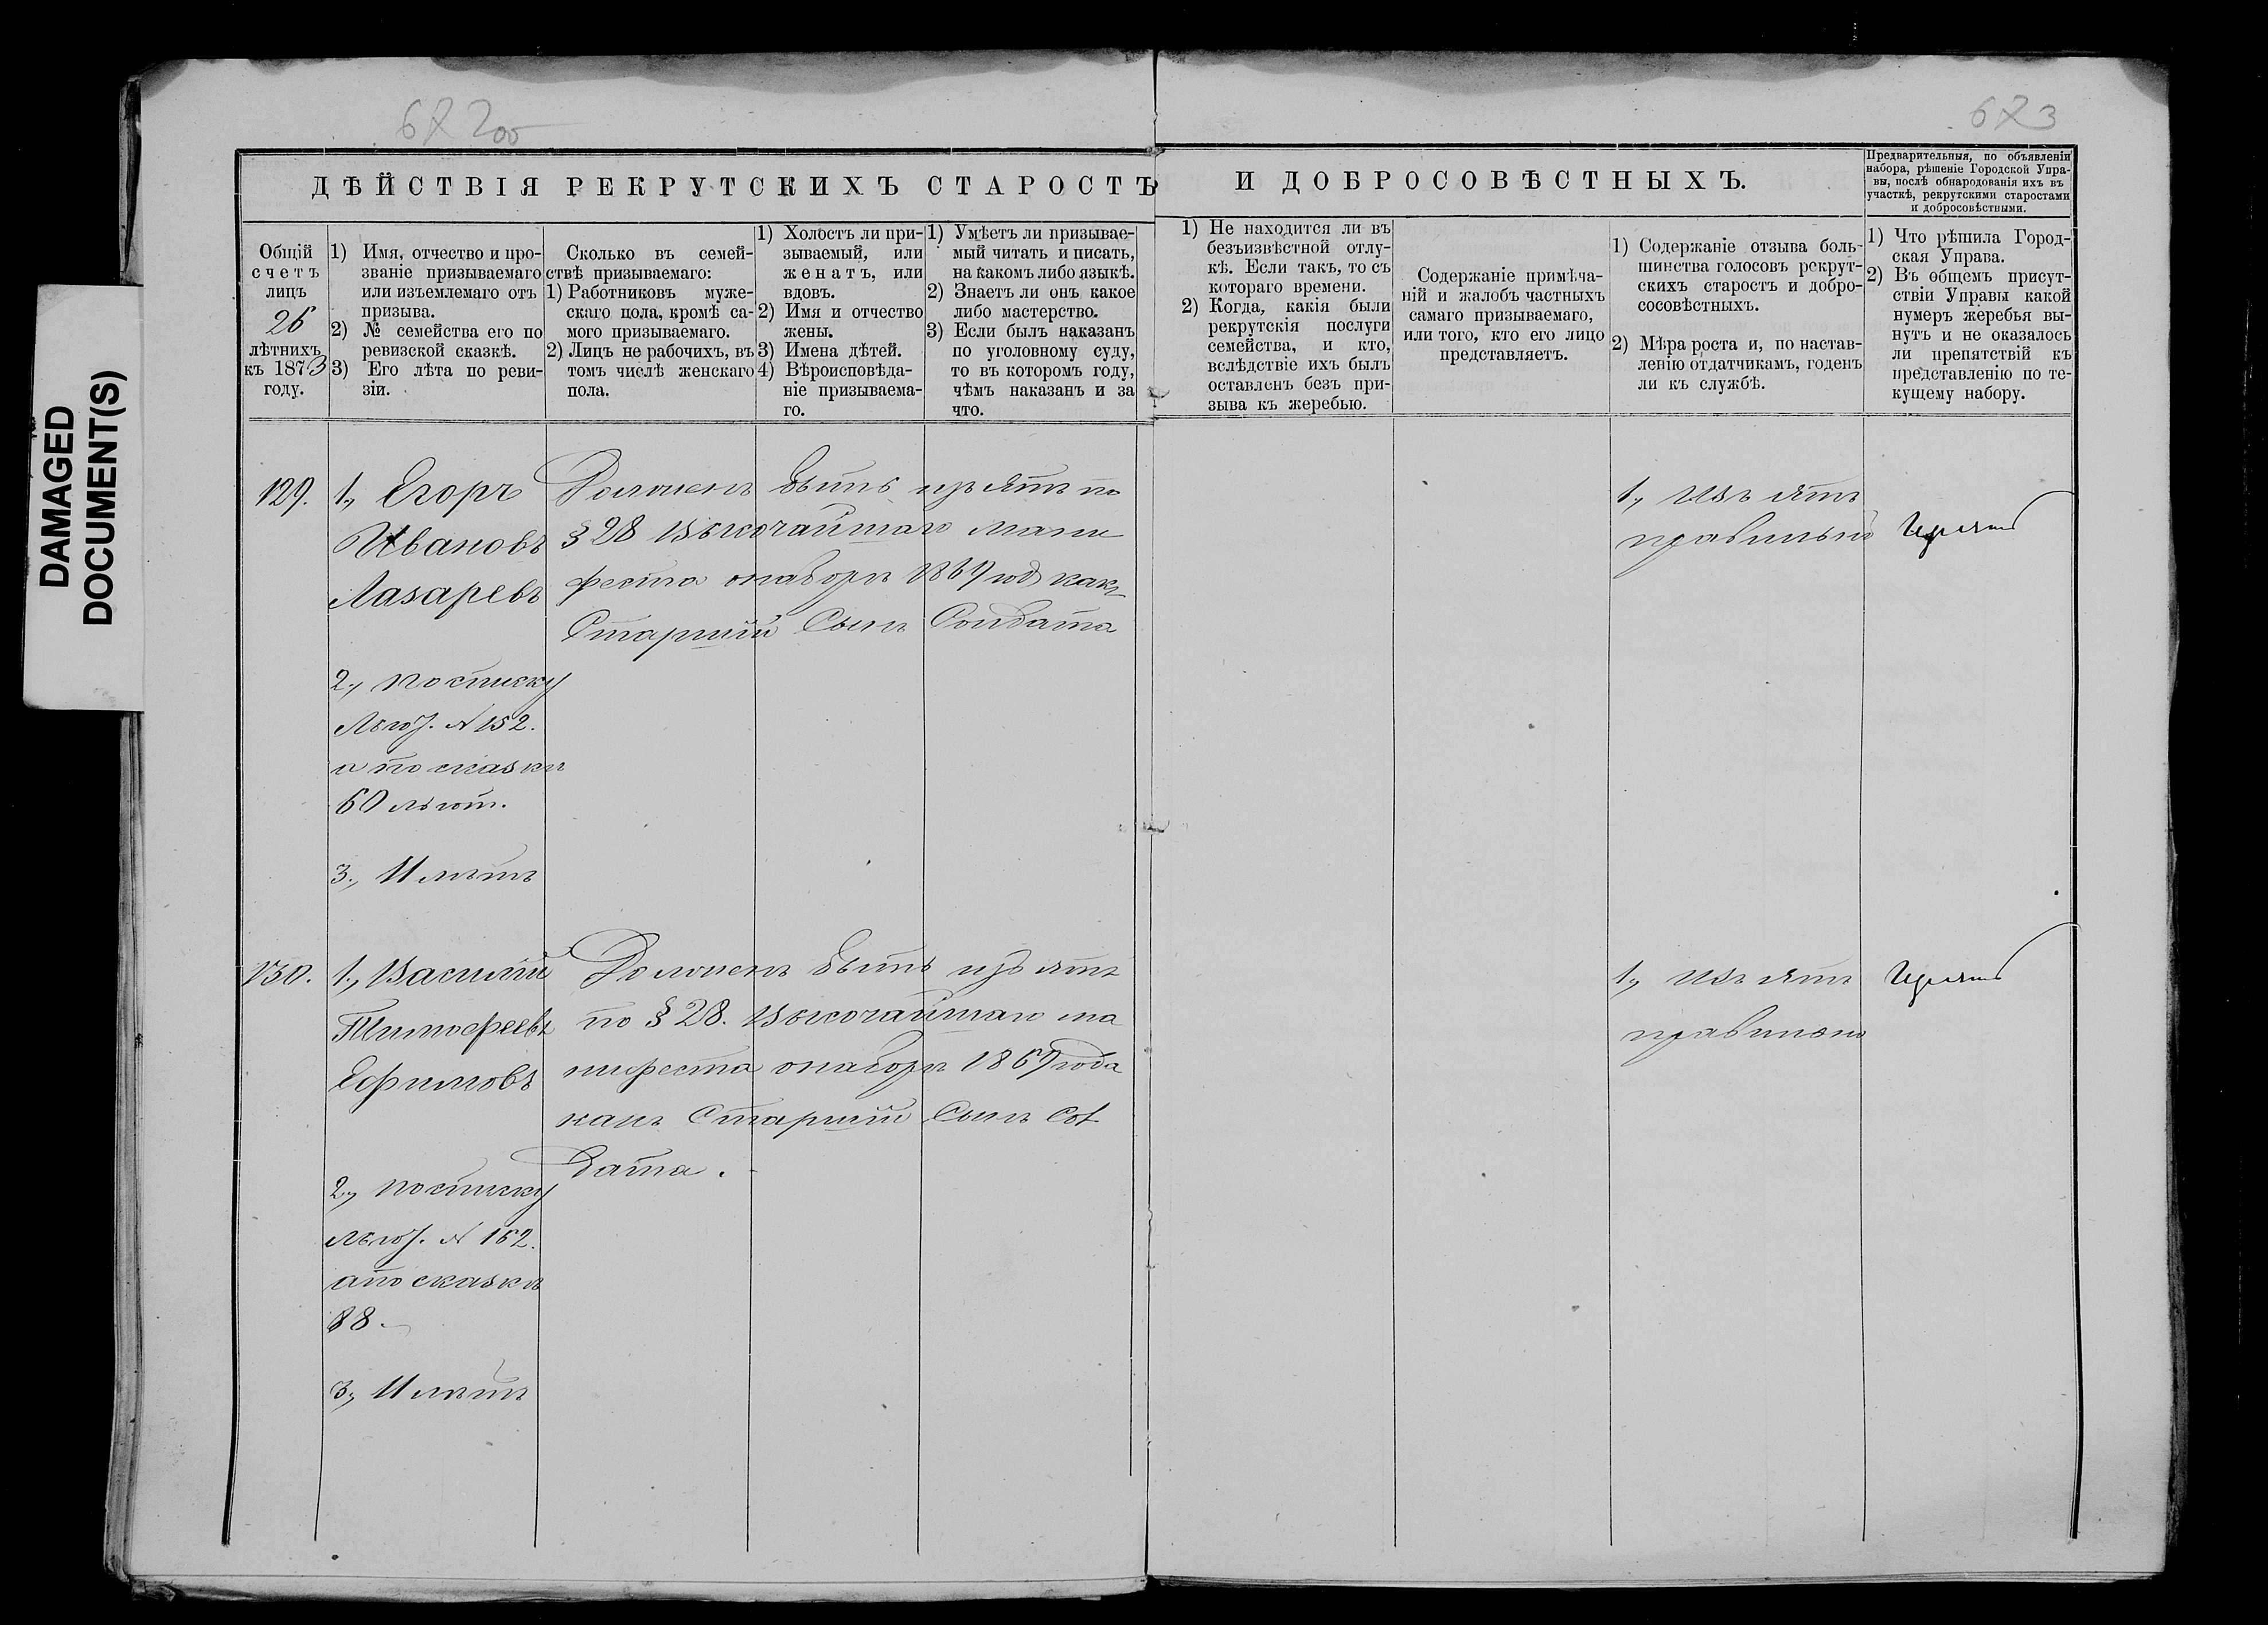 DAMAGED
DOCUMENT(S)
672 об
673
ДѢЙСТВІЯ РЕКРУТСКИХЪ СТАРОСТЪ
И ДОБРОСОВѢСТНЫХЪ.
Предварительныя, по объявленіи
набора, рѣшеніе Городской Упра-
вы, послѣ обнародованія ихъ въ
участкѣ, рекрутскими старостами
и добросовѣстными.
Общій
счетъ
лицъ
26
лѣтнихъ
къ 1873
году.
1) Имя, отчество и про-
званіе призываемаго
или изъемлемаго отъ
призыва.
2) № семейства его по
ревизской сказкѣ.
3) Его лѣта по реви-
зіи.
Сколько въ семей-
ствѣ призываемаго:
1) Работниковъ муже-
скаго пола, кромѣ са-
мого призываемаго.
2) Лицъ не рабочихъ, въ
томъ числѣ женскаго
пола.
1) Холостъ ли при-
зываемый, или
женатъ, или
вдовъ.
2) Имя и отчество
жены.
3) Имена дѣтей.
4) Вѣроисповѣда-
ніе призываема-
го.
1) Умѣетъ ли призывае-
мый читать и писать,
на какомъ либо языкѣ.
2) Знаетъ ли онъ какое
либо мастерство.
3) Если былъ наказанъ
по уголовному суду,
то въ которомъ году,
чѣмъ наказанъ и за
что.
1) Не находится ли въ
безъизвѣстной отлу-
кѣ. Если такъ, то съ
котораго времени.
2) Когда, какія были
рекрутскія послуги
семейства, и кто,
вслѣдствіе ихъ былъ
оставленъ безъ при-
зыва къ жеребью.
Содержаніе примѣча-
ній и жалобъ частныхъ
самаго призываемаго,
или того, кто его лицо
представляетъ.
1) Содержаніе отзыва боль-
шинства голосовъ рекрут-
скихъ старостъ и добро-
сосовѣстныхъ.
2) Мѣра роста и, по настав-
ленію отдатчикамъ, годенъ
ли къ службѣ.
1) Что рѣшила Город-
ская Управа.
2) Въ общемъ присут-
ствіи Управы какой
нумеръ жеребья вы-
нутъ и не оказалось
ли препятствій къ
представленію по те-
кущему набору.
129.
1., Егоръ
Ивановъ
Лазаревъ
2., по списку
Льгот. N 152.
а по сказкѣ
60 льгот.
3., 11 лѣтъ
Долженъ быть изъятъ по
§ 28 Высочайшаго мани
феста о наборѣ 1869 года какъ
Старшій Сынъ Солдата
1., Изъятъ
правильно
Изъятъ
130.
1., Василій
Тимофеевъ
Ефимовъ
2., по списку
Льгот. N 162.
а по сказкѣ
88.
3., 11 лѣтъ
Долженъ быть изъятъ
по § 28. Высочайшаго ма
нифеста о наборѣ 1869 года
какъ Старшій Сынъ Сол
дата.
1., Изъятъ
правильно
Изъятъ